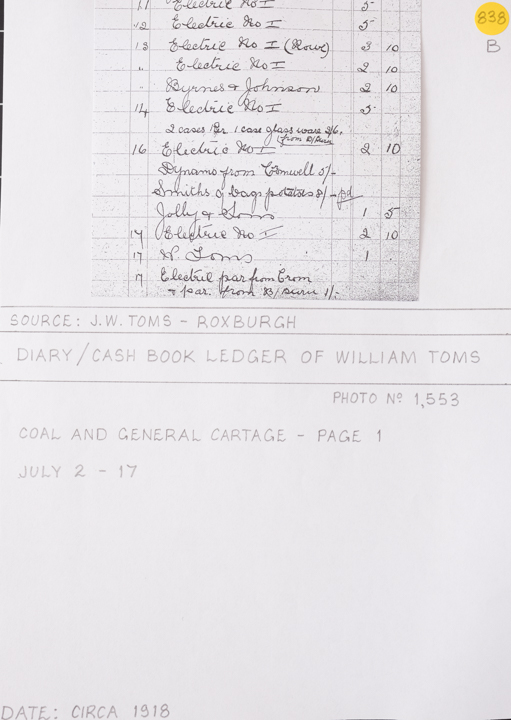 11 Electric No I 5
838
12 Electric No I 5
B
13 Electric No I (Rowe) 3 10
" Electric No I 2 10
" Byrnes & Johnson 2 10
14 Electric No I 5
2 cases 1 case glass ware 2/6,
(from
16 Electric No I 2 10
Dynamo from Cromwell 5/-
Smiths 9 bags potatoes 9/- pd
Jolly & Sons 1 5
17 Electric No I 2 10
17 W. Toms 1
17 Electric par from Crom
& par. from 1/-
SOURCE: J.W. TOMS - ROXBURGH
DIARY/CASH BOOK LEDGER OF WILLIAM TOMS
PHOTO Nº 1,553
COAL AND GENERAL CARTAGE - PAGE 1
JULY 2 - 17
DATE: CIRCA 1918